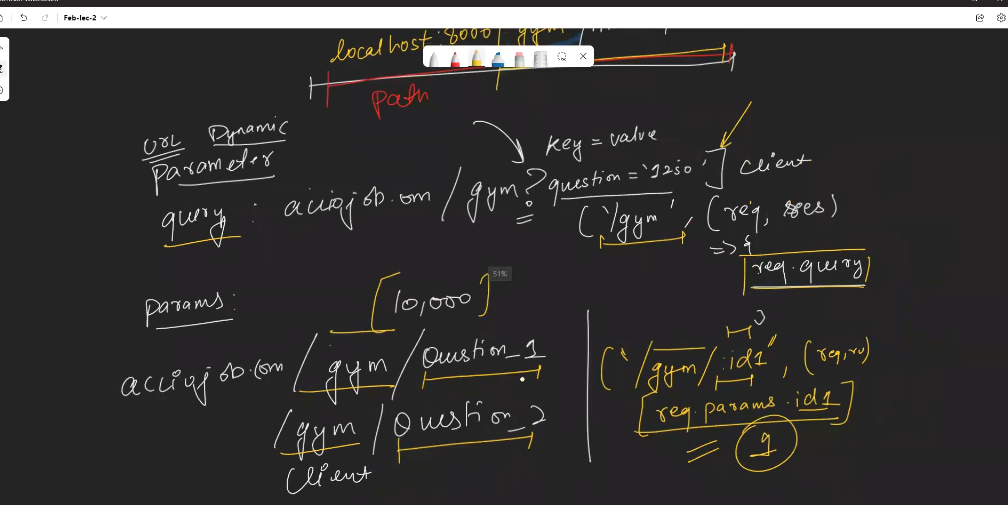 Feb-lec-2
localhost:8000/gym/
Path
URL Dynamic
Parameter
key = value
query : acciojob.com/gym? question = '1250' ] client
('/gym', (req, res)
=> {
req.query
51%
Params:
[10,000]
acciojob.com/gym/Question_1
/gym/Question_2
Client
("/gym/:id1", (req, res)
[req.params.id1]
= 1